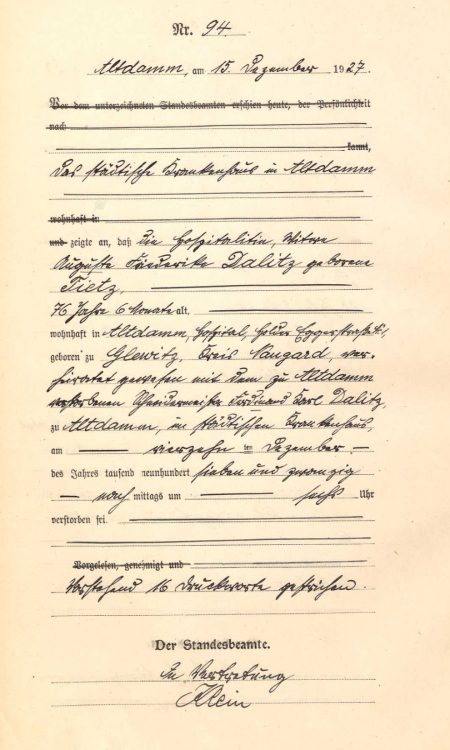 Nr. 94.
Altdamm, am 15. Dezember 1927.
Vor dem unterzeichneten Standesbeamten erschien heute, der Persönlichkeit
nach
kannt,
Das städtische Krankenhaus in Altdamm
wohnhaft in
und zeigte an, daß die Hospitalitin, Witwe
Auguste Friederike Dalitz geborene
Tietz,
76 Jahre 6 Monate alt,
wohnhaft in Altdamm, Hospital, Holder Eggerstraße
geboren zu Glewitz, Kreis Naugard, ver-
heiratet gewesen mit dem zu Altdamm
verstorbenen Schneidermeister Ferdinand Karl Dalitz,
zu Altdamm, im städtischen Krankenhaus,
am vierzehn ten Dezember
des Jahres tausend neunhundert sieben und zwanzig
nach mittags um sechs Uhr
verstorben sei.
Vorgelesen, genehmigt und
Vorstehend 16 Druckworte gestrichen.
Der Standesbeamte.
In Vertretung
Klein